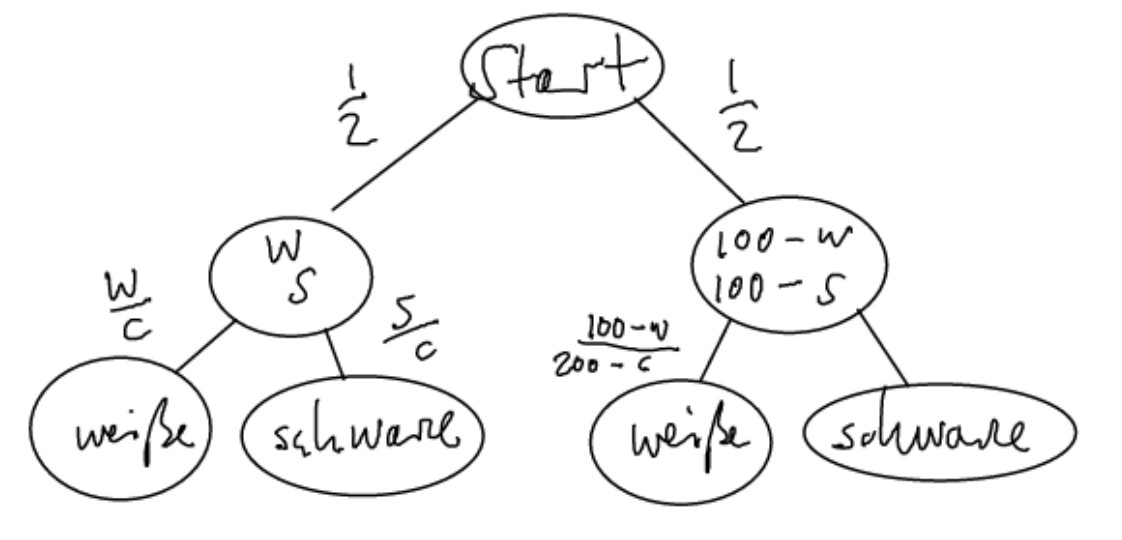 Start
1/2
1/2
W
S
100 - w
100 - s
W/c
S/c
100-w/200-c
weiße
schwarze
weiße
schwarze